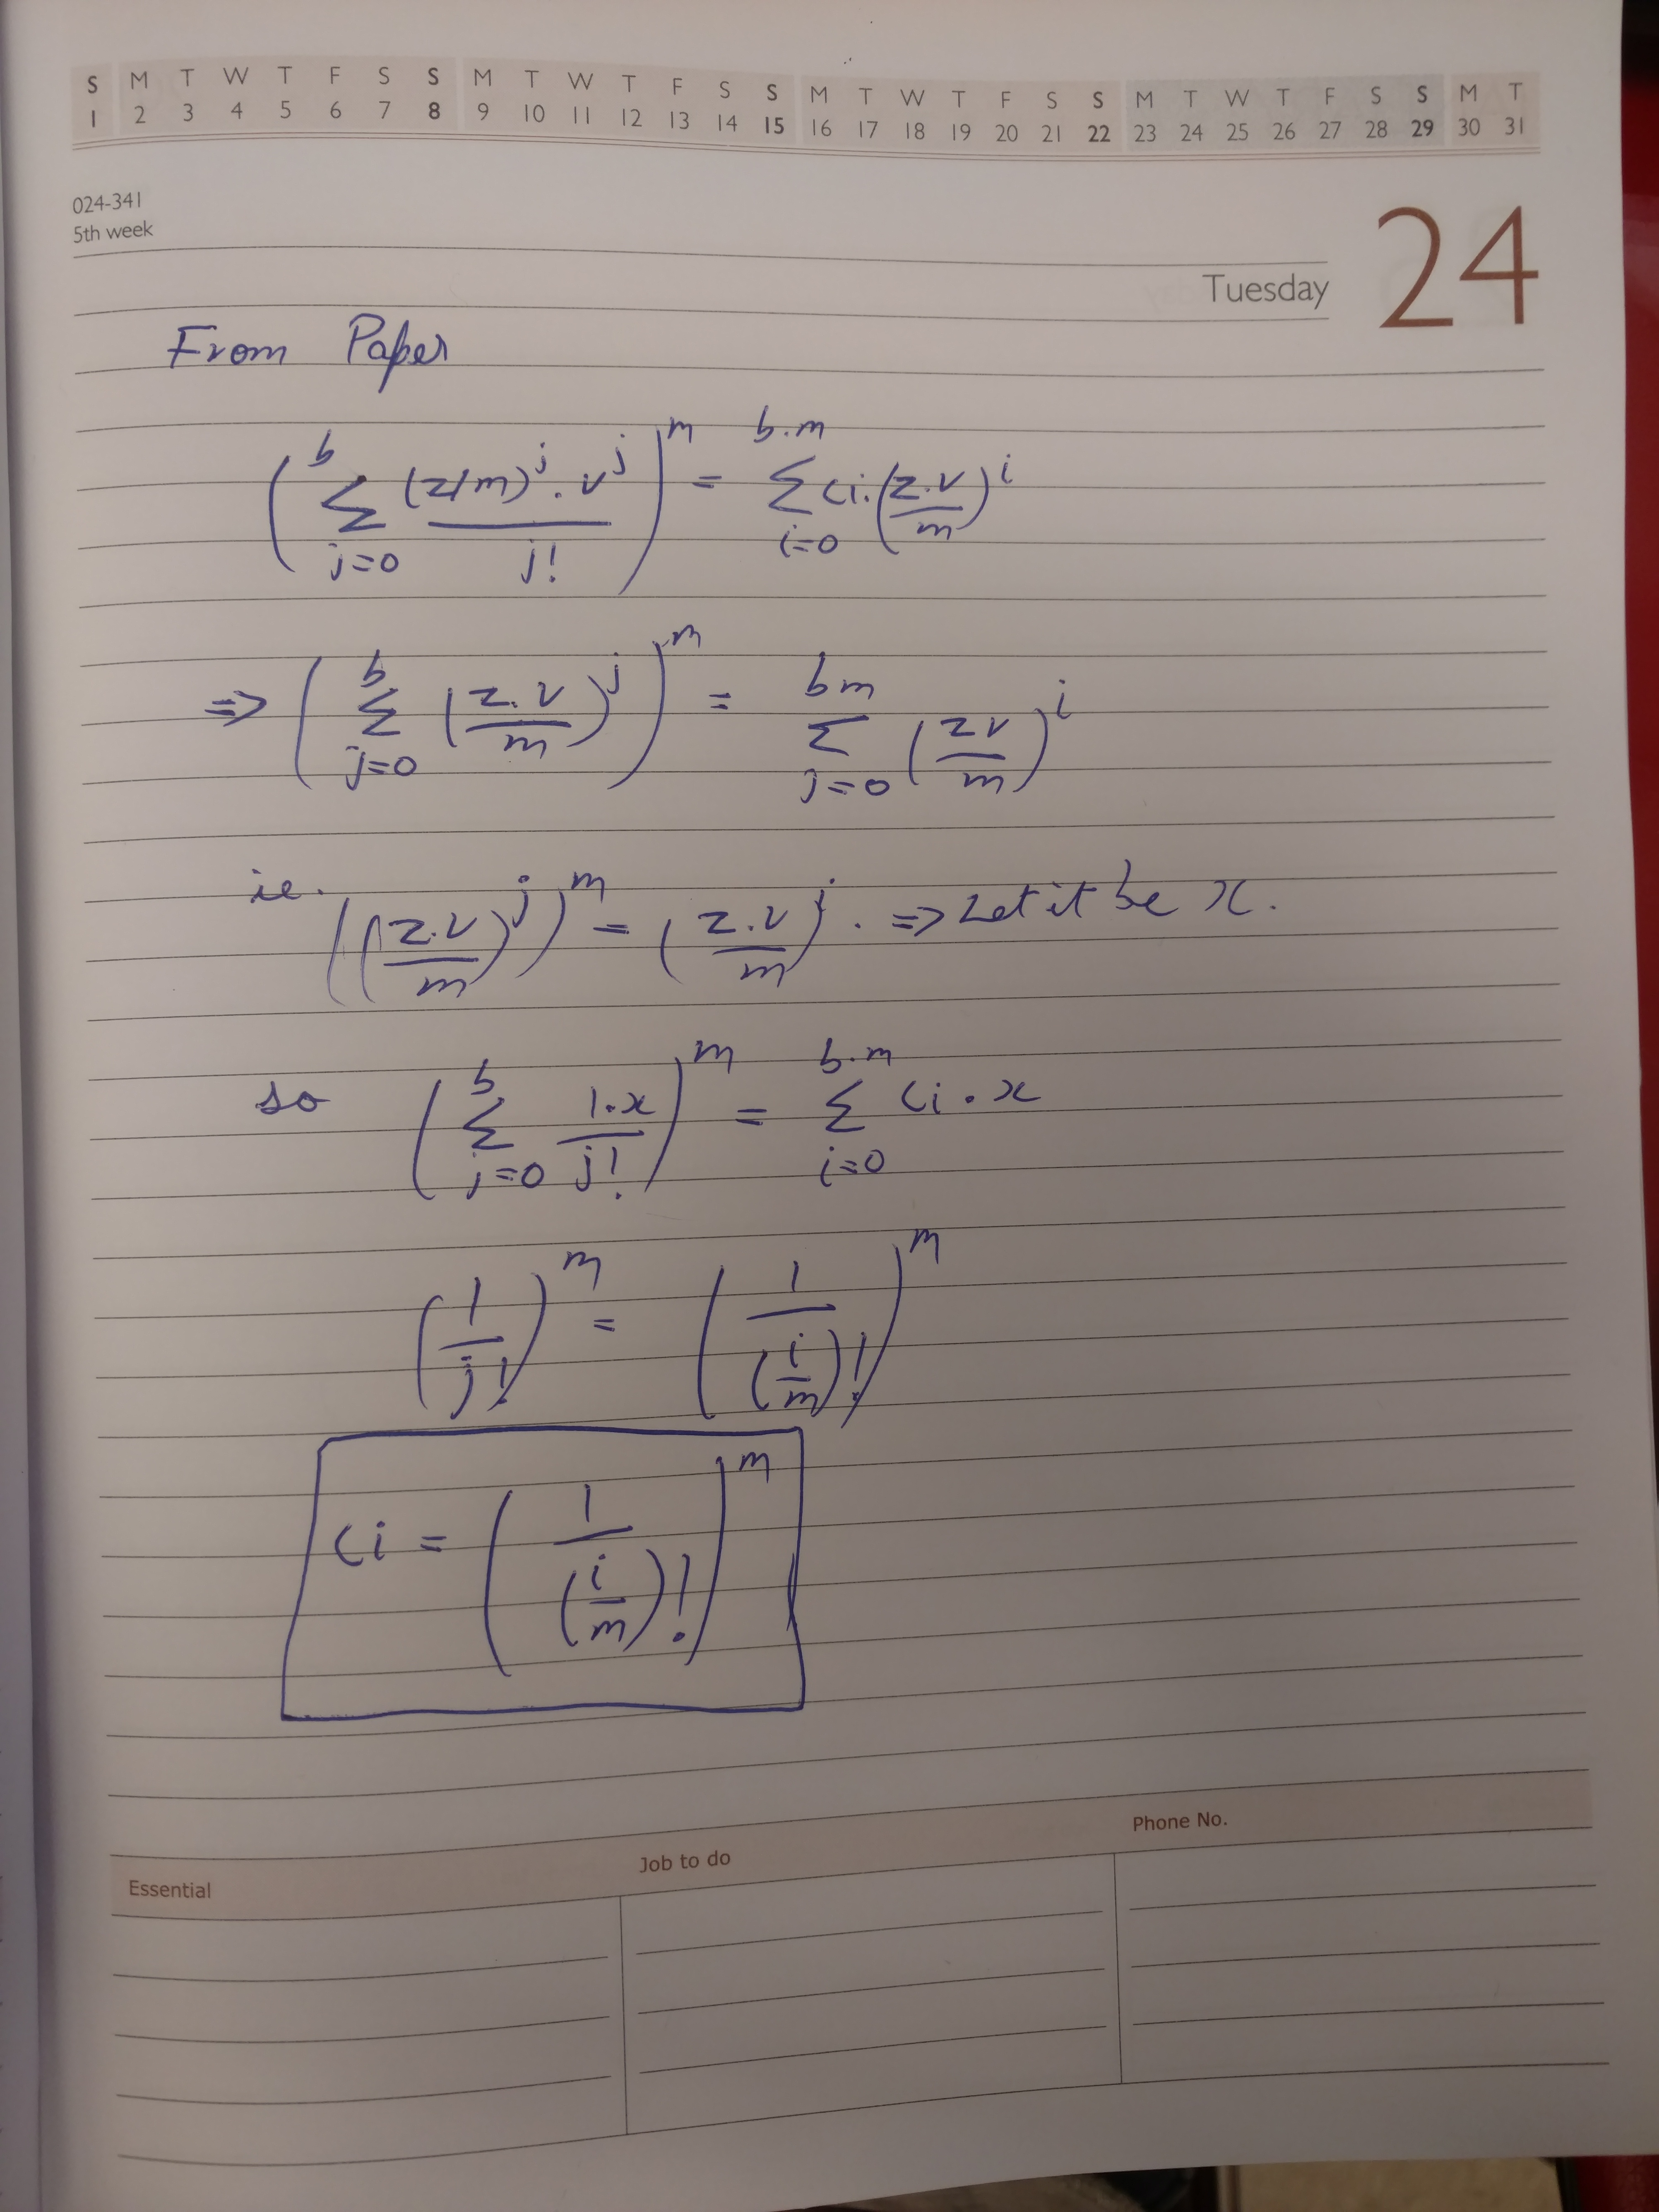 S M T W T F S S M T W T F S S M T W T F S S M T W T F S S M T
1 2 3 4 5 6 7 8 9 10 11 12 13 14 15 16 17 18 19 20 21 22 23 24 25 26 27 28 29 30 31
024-341
5th week
24
Tuesday
From Paper
( b Σ j=0 (z/m)^j . v^j / j! )^m = b.m Σ i=0 ci. (z.v / m)^i
=> ( b Σ j=0 (z.v / m)^j )^m = bm Σ j=0 (zv / m)^i
ie. ((z.v / m)^j)^m = (z.v / m)^j . => Let it be x.
so ( b Σ j=0 1.x / j! )^m = b.m Σ i=0 ci . x
(1 / j!)^m = (1 / (i/m)!)^m
ci = (1 / (i/m)!)^m
Essential Job to do Phone No.